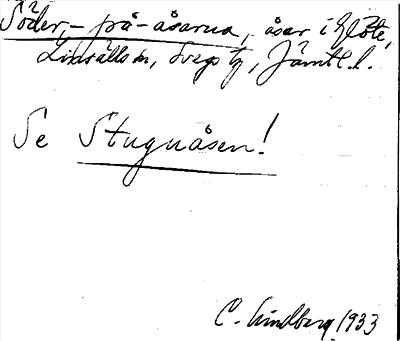 Söder,-på-åsarna, åsar i Glöte,
Linsälls sn, Svegs tg, Jämtl. l.
Se Stuguåsen!
C. Lindberg 1933